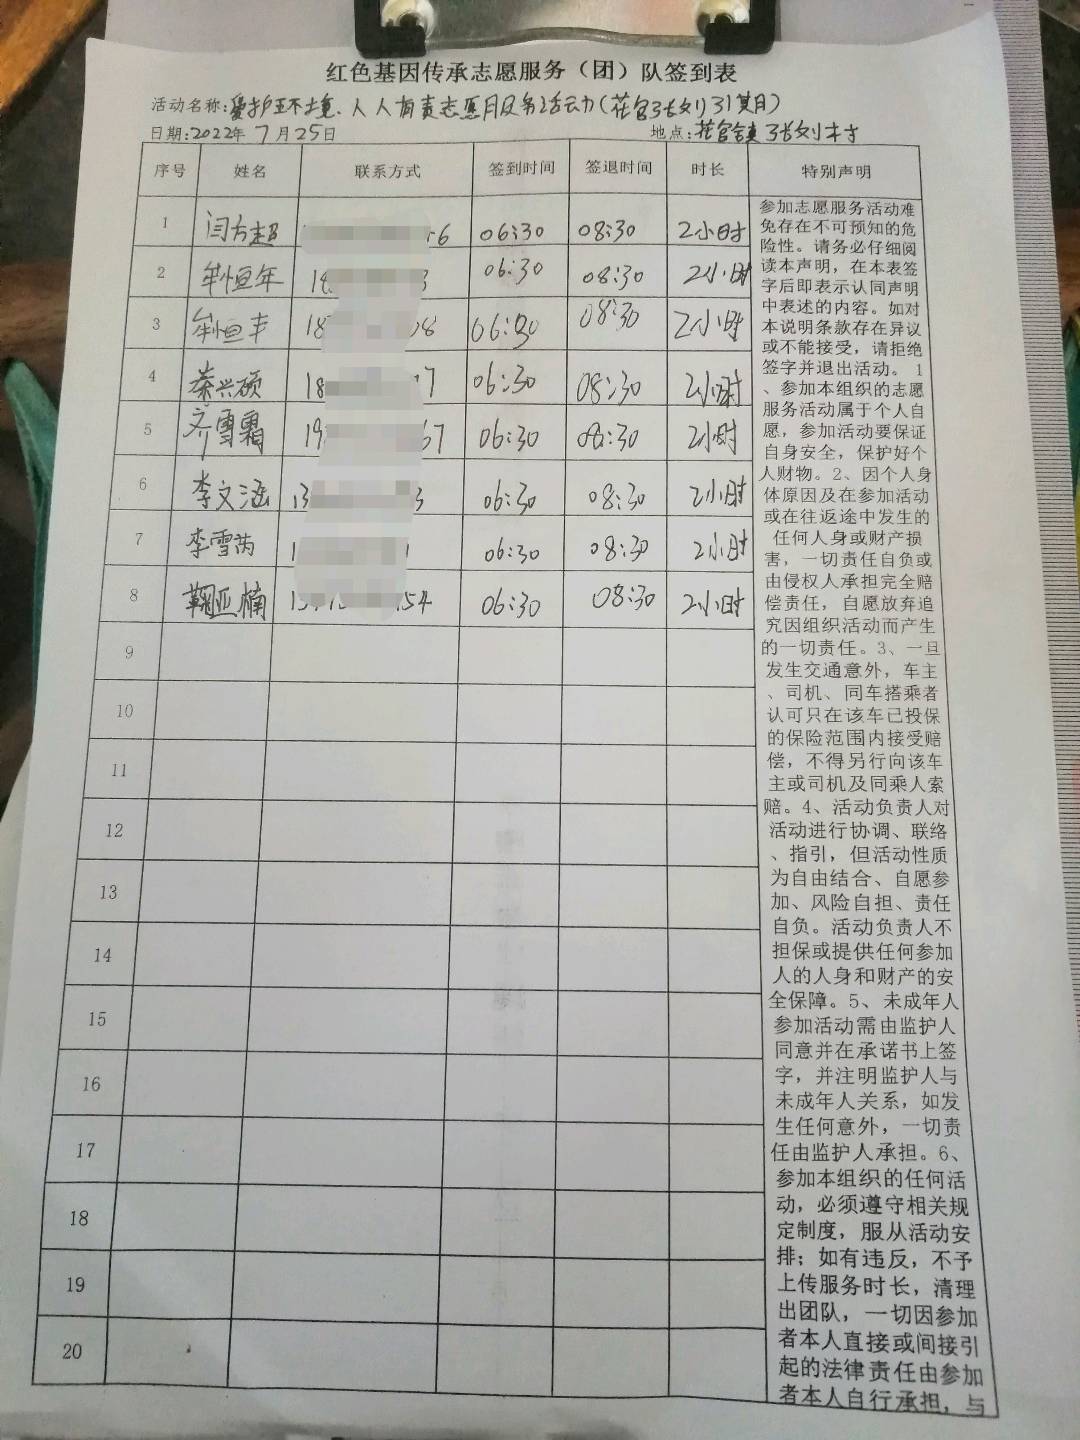 红色基因传承志愿服务（团）队签到表
活动名称:爱护环境、人人有责志愿服务活动(花官张刘31期)
日期:2022年7月25日 地点:花官镇张刘村
序号 姓名 联系方式 签到时间 签退时间 时长 特别声明
1 闫方超 6 06:30 08:30 2小时
2 牟恒年 18 3 06:30 08:30 2小时
3 牟恒丰 18 08 06:30 08:30 2小时
4 秦兴硕 18 7 06:30 08:30 2小时
5 齐雪霜 19 67 06:30 08:30 2小时
6 李文涵 13 3 06:30 08:30 2小时
7 李雪芮 1 06:30 08:30 2小时
8 鞠亚楠 154 06:30 08:30 2小时
9
10
11
12
13
14
15
16
17
18
19
20
参加志愿服务活动难
免存在不可预知的危
险性。请务必仔细阅
读本声明，在本表签
字后即表示认同声明
中表述的内容。如对
本说明条款存在异议
或不能接受，请拒绝
签字并退出活动。 1
、参加本组织的志愿
服务活动属于个人自
愿，参加活动要保证
自身安全，保护好个
人财物。2、因个人身
体原因及在参加活动
或在往返途中发生的
任何人身或财产损
害，一切责任自负或
由侵权人承担完全赔
偿责任，自愿放弃追
究因组织活动而产生
的一切责任。3、一旦
发生交通意外，车主
、司机、同车搭乘者
认可只在该车已投保
的保险范围内接受赔
偿，不得另行向该车
主或司机及同乘人索
赔。4、活动负责人对
活动进行协调、联络
、指引，但活动性质
为自由结合、自愿参
加、风险自担、责任
自负。活动负责人不
担保或提供任何参加
人的人身和财产的安
全保障。5、未成年人
参加活动需由监护人
同意并在承诺书上签
字，并注明监护人与
未成年人关系，如发
生任何意外，一切责
任由监护人承担。6、
参加本组织的任何活
动，必须遵守相关规
定制度，服从活动安
排；如有违反，不予
上传服务时长，清理
出团队，一切因参加
者本人直接或间接引
起的法律责任由参加
者本人自行承担，与